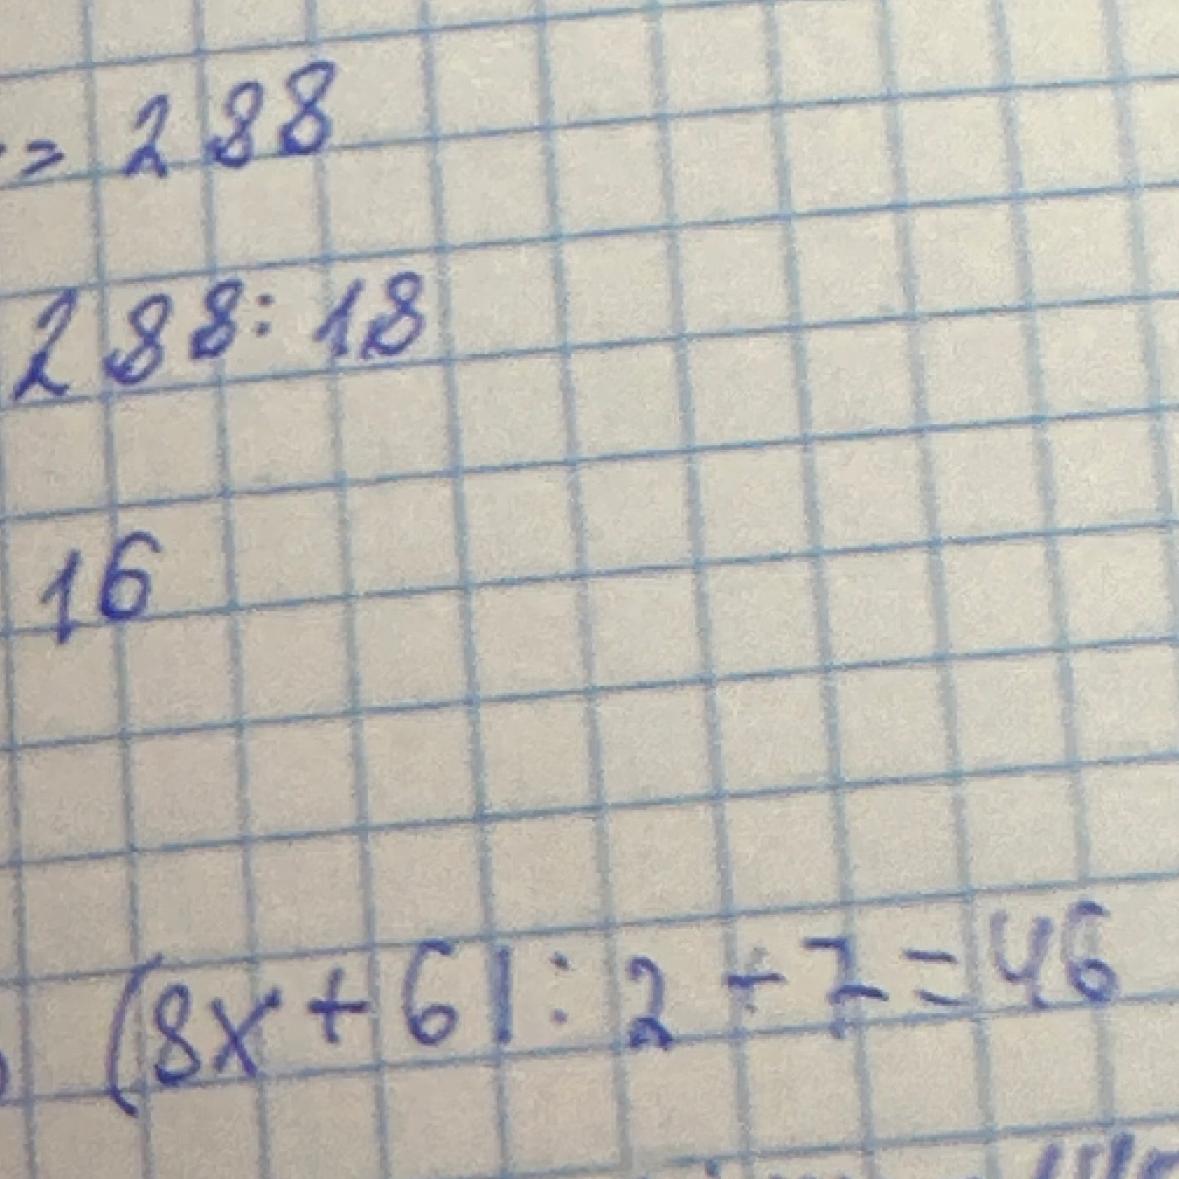 = 288
288 : 18
16
(8x + 6) : 2 - 7 = 46